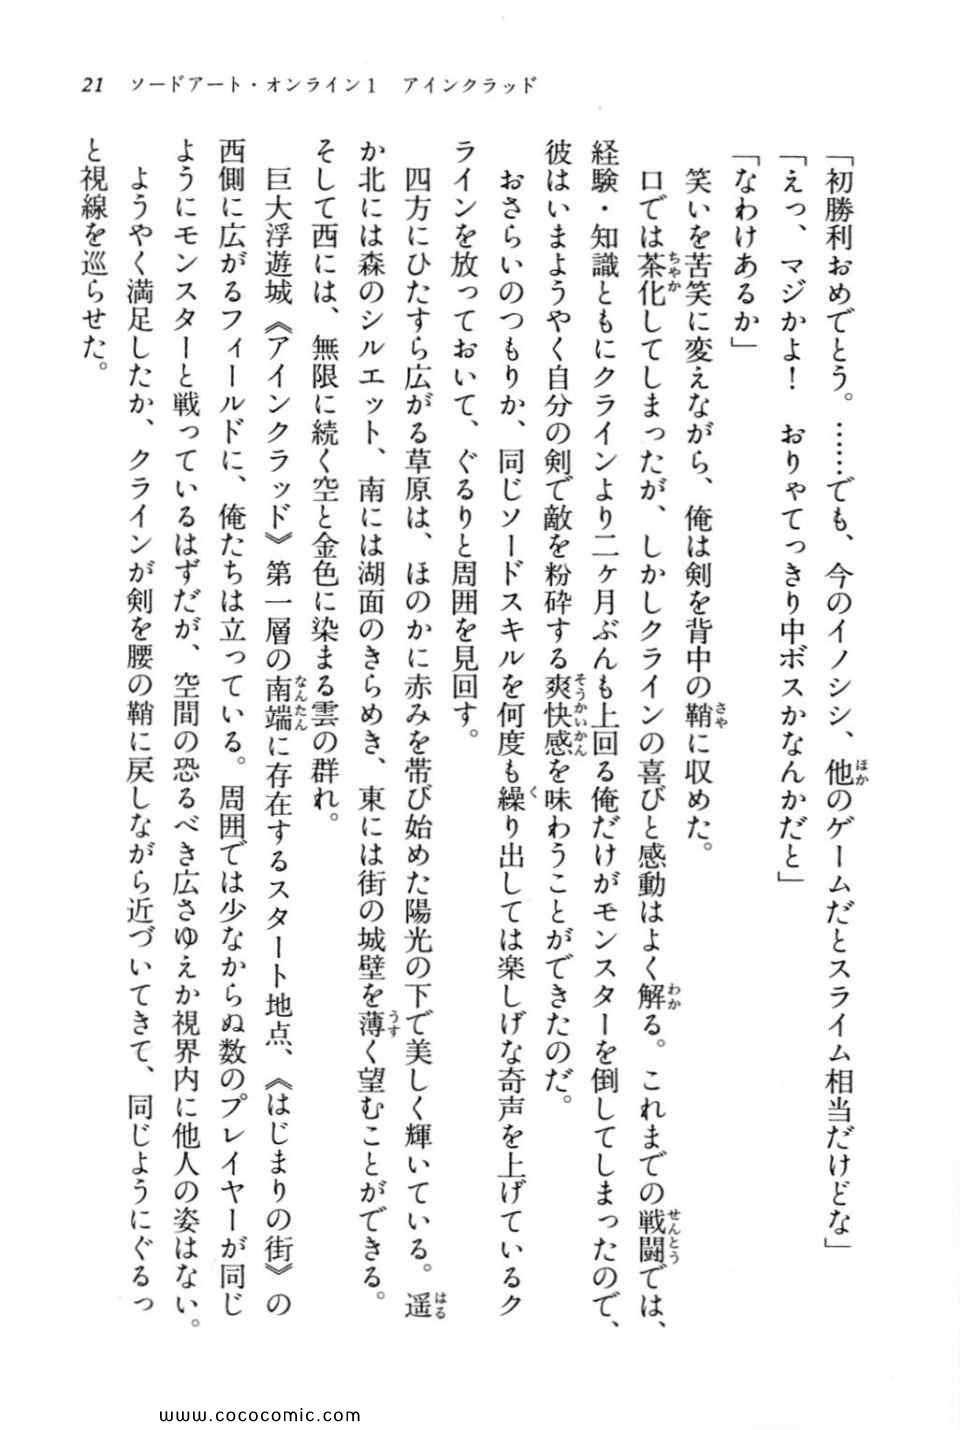 21 ソードアート・オンライン1 アインクラッド
「初勝利おめでとう。……でも、今のイノシシ、他のゲームだとスライム相当だけどな」
「えっ、マジかよ！ おりゃてっきり中ボスかなんかだと」
「なわけあるか」
笑いを苦笑に変えながら、俺は剣を背中の鞘に収めた。
口では茶化してしまったが、しかしクラインの喜びと感動はよく解る。これまでの戦闘では、
経験・知識ともにクラインより二ヶ月ぶんも上回る俺だけがモンスターを倒してしまったので、
彼はいまようやく自分の剣で敵を粉砕する爽快感を味わうことができたのだ。
おさらいのつもりか、同じソードスキルを何度も繰り出しては楽しげな奇声を上げているク
ラインを放っておいて、ぐるりと周囲を見回す。
四方にひたすら広がる草原は、ほのかに赤みを帯び始めた陽光の下で美しく輝いている。遥
か北には森のシルエット、南には湖面のきらめき、東には街の城壁を薄く望むことができる。
そして西には、無限に続く空と金色に染まる雲の群れ。
巨大浮遊城《アインクラッド》第一層の南端に存在するスタート地点、《はじまりの街》の
西側に広がるフィールドに、俺たちは立っている。周囲では少なからぬ数のプレイヤーが同じ
ようにモンスターと戦っているはずだが、空間の恐るべき広さゆえか視界内に他人の姿はない。
ようやく満足したか、クラインが剣を腰の鞘に戻しながら近づいてきて、同じようにぐるっ
と視線を巡らせた。
www.cococomic.com